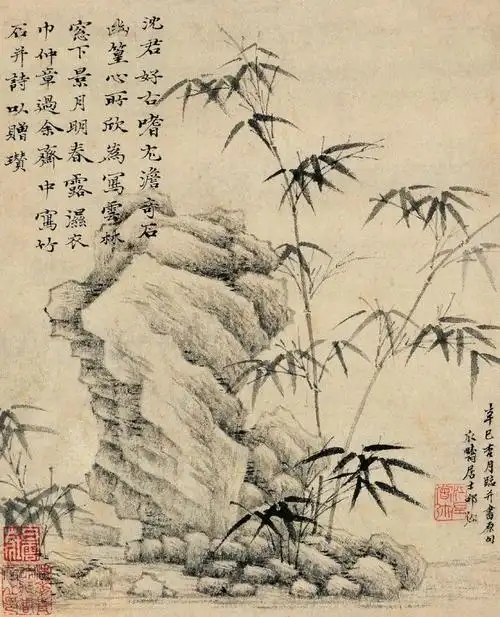 沈君好古嗜尤澹奇石
幽篁心所欣為寫雲林
窓下景月明春露濕衣
巾仲章過余齋中寫竹
石并詩以贈瓚
辛巳月臨并書原句
居士